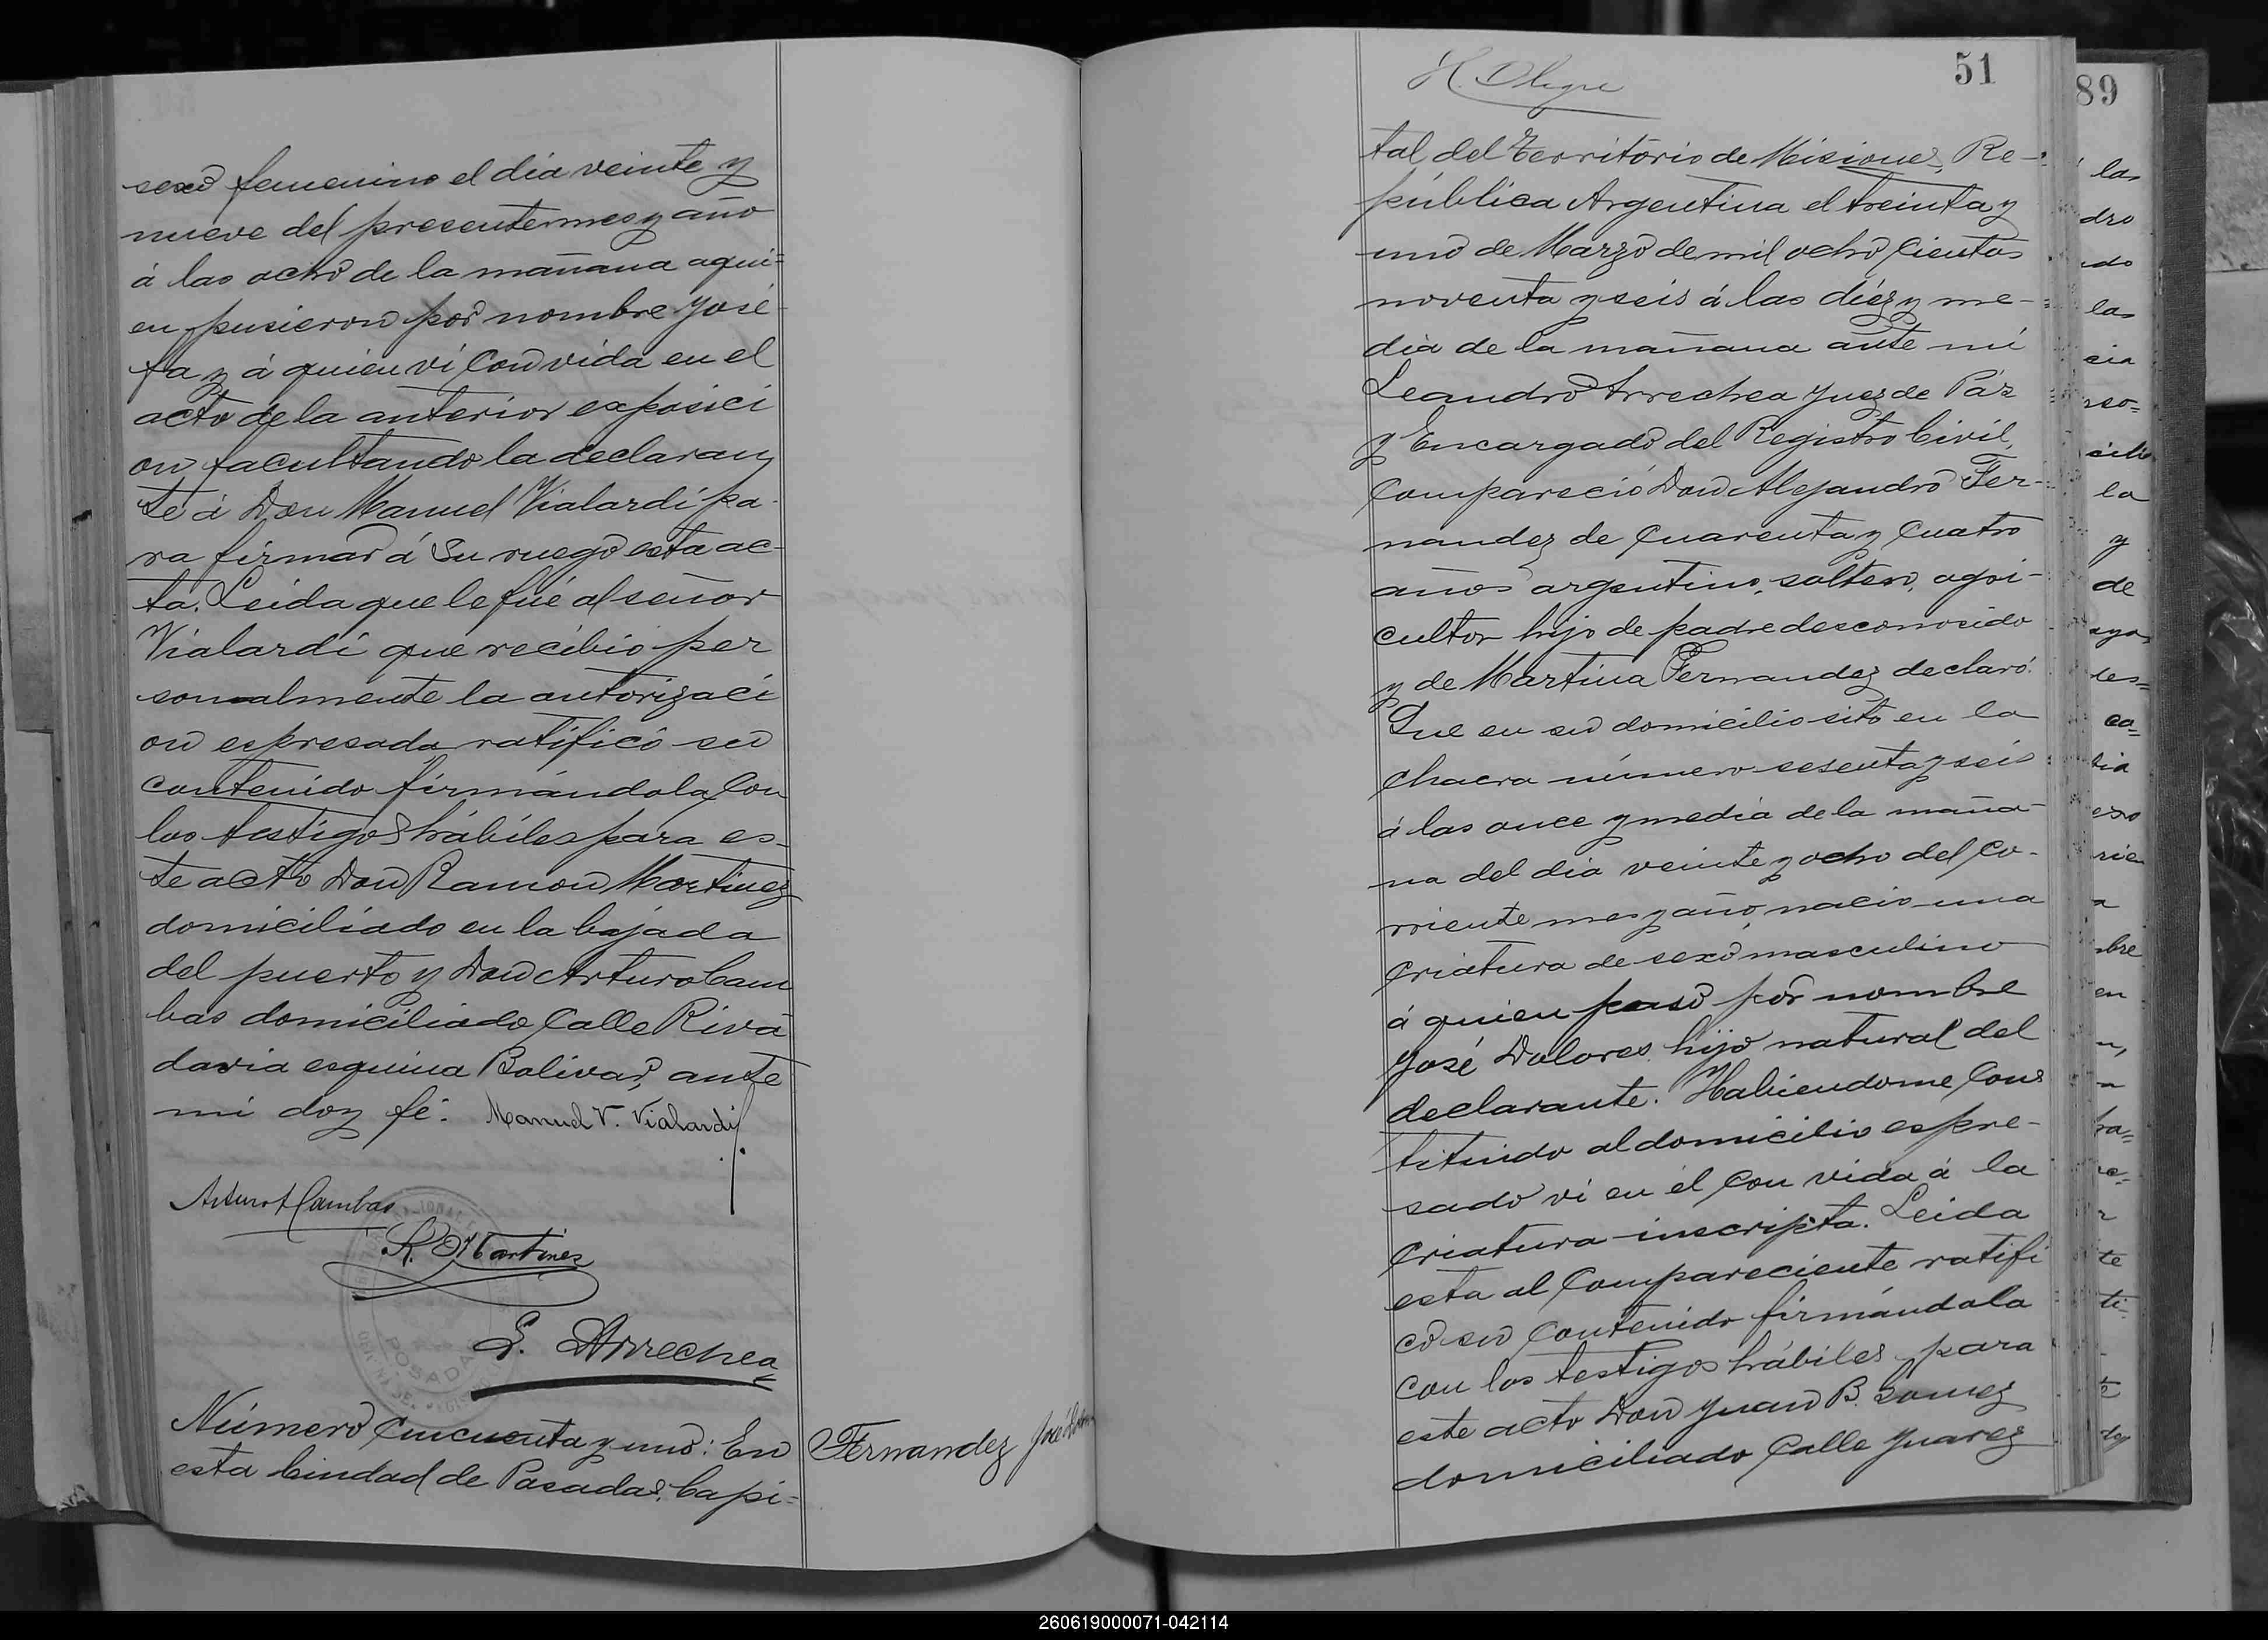 sexo femenino el dia veinte y
nueve del presente mes y año
á las ocho de la mañana aqui=
en pusieron por nombre José
fa y á quien ví con vida en el
acto de la anterior exposici
on facultando la declaran
te á Don Manuel Vialardi pa-
ra firmar á su ruego esta ac-
ta. Leida que le fué al señor
Vialardi que recibio per
sonalmente la autorizaci
on espresada ratificó su
contenido firmándola con
los testigos hábiles para es-
te acto Don Ramon Martinez
domiciliado en la bajada
del puerto y Don Arturo Cam
bas domiciliado Calle Riva
davia esquina Bolivar, ante
mi doy fé. Manuel V. Vialardi
Arturo Cambas
R. Martinez
L. Arrechea
POSADAS
Número Cincuenta y uno: En
esta Ciudad de Posadas, Capi-
Fernandez José
51
tal del Territorio de Misiones, Re-
pública Argentina el treinta y
uno de Marzo de mil ocho cientos
noventa y seis á las diéz y me-
dia de la mañana ante mi
Leandro Arrechea Juez de Páz
y Encargado del Registro Civil,
Compareció Don Alejandro Fer-
nandez de cuarenta y cuatro
años argentino, soltero, agri-
cultor hijo de padre desconosido
y de Martina Fernandez declaró:
Que en su domicilio sito en la
chacra número sesenta y seis
á las once y media de la maña-
na del dia veinte y ocho del co-
rriente mes y año, nacio una
criatura de sexo masculino
á quien puso por nombre
José Dolores hijo natural del
declarante. Habiendome cons
tituido al domicilio espre-
sado ví en él con vida á la
criatura inscripta. Leida
esta al compareciente ratifi
có su contenido firmándola
con los testigos hábiles para
este acto Don Juan B. Gomez
domiciliado Calle Juarez
89
las
dro
ado
las
cia
la
y
de
co=
a
en
te
ti-
260619000071-042114